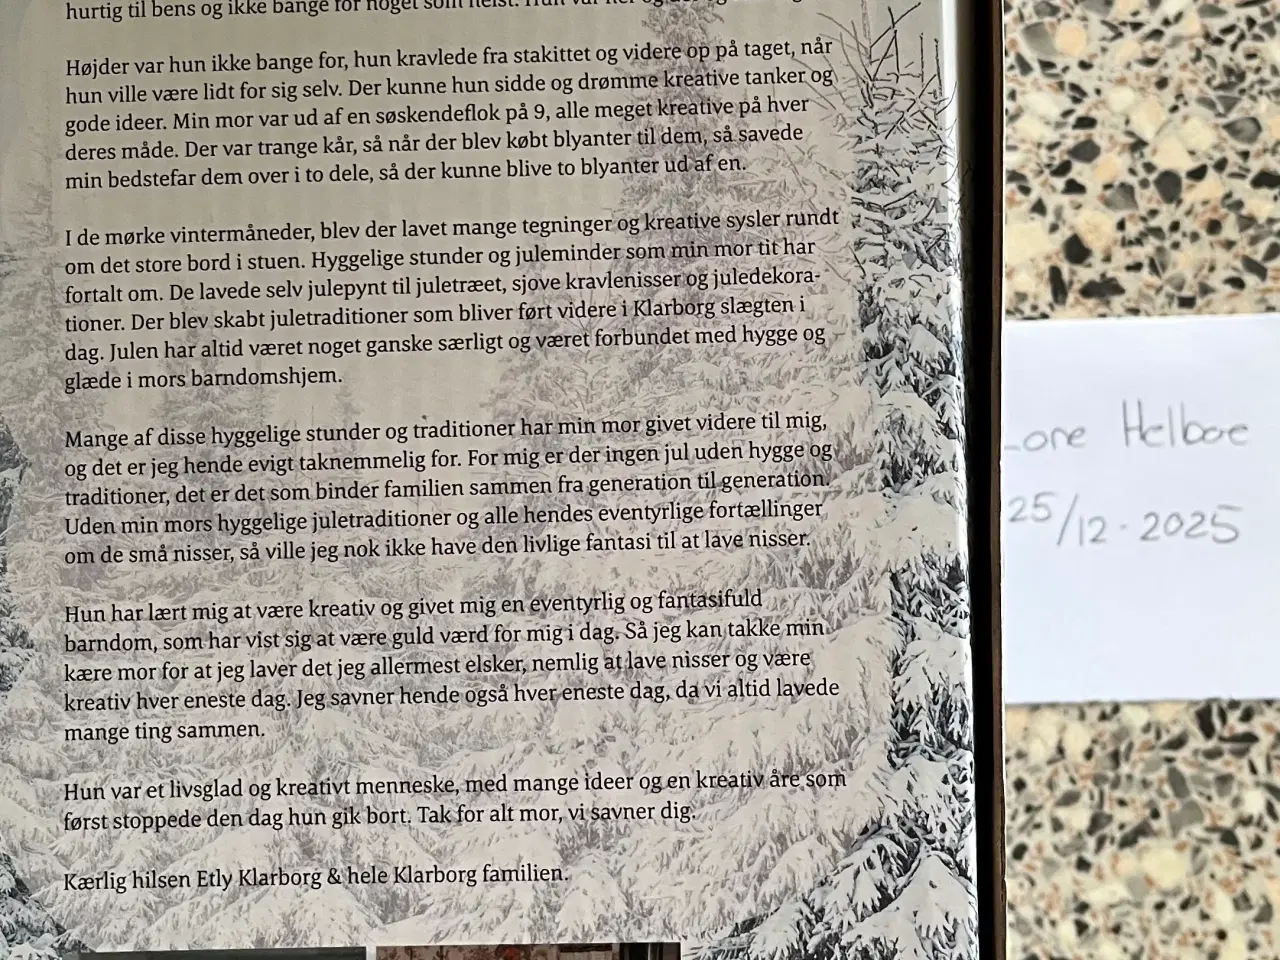 hurtig til bens og ikke bange for noget som helst. Hun var
Højder var hun ikke bange for, hun kravlede fra stakittet og videre op på taget, når
hun ville være lidt for sig selv. Der kunne hun sidde og drømme kreative tanker og
gode ideer. Min mor var ud af en søskendeflok på 9, alle meget kreative på hver
deres måde. Der var trange kår, så når der blev købt blyanter til dem, så savede
min bedstefar dem over i to dele, så der kunne blive to blyanter ud af en.
I de mørke vintermåneder, blev der lavet mange tegninger og kreative sysler rundt
om det store bord i stuen. Hyggelige stunder og juleminder som min mor tit har
fortalt om. De lavede selv julepynt til juletræet, sjove kravlenisser og juledekora-
tioner. Der blev skabt juletraditioner som bliver ført videre i Klarborg slægten i
dag. Julen har altid været noget ganske særligt og været forbundet med hygge og
glæde i mors barndomshjem.
Mange af disse hyggelige stunder og traditioner har min mor givet videre til mig,
og det er jeg hende evigt taknemmelig for. For mig er der ingen jul uden hygge og
traditioner, det er det som binder familien sammen fra generation til generation.
Uden min mors hyggelige juletraditioner og alle hendes eventyrlige fortællinger
om de små nisser, så ville jeg nok ikke have den livlige fantasi til at lave nisser.
Hun har lært mig at være kreativ og givet mig en eventyrlig og fantasifuld
barndom, som har vist sig at være guld værd for mig i dag. Så jeg kan takke min
kære mor for at jeg laver det jeg allermest elsker, nemlig at lave nisser og være
kreativ hver eneste dag. Jeg savner hende også hver eneste dag, da vi altid lavede
mange ting sammen.
Hun var et livsglad og kreativt menneske, med mange ideer og en kreativ åre som
først stoppede den dag hun gik bort. Tak for alt mor, vi savner dig.
Kærlig hilsen Etly Klarborg & hele Klarborg familien.
Lone Helboe
25/12-2025